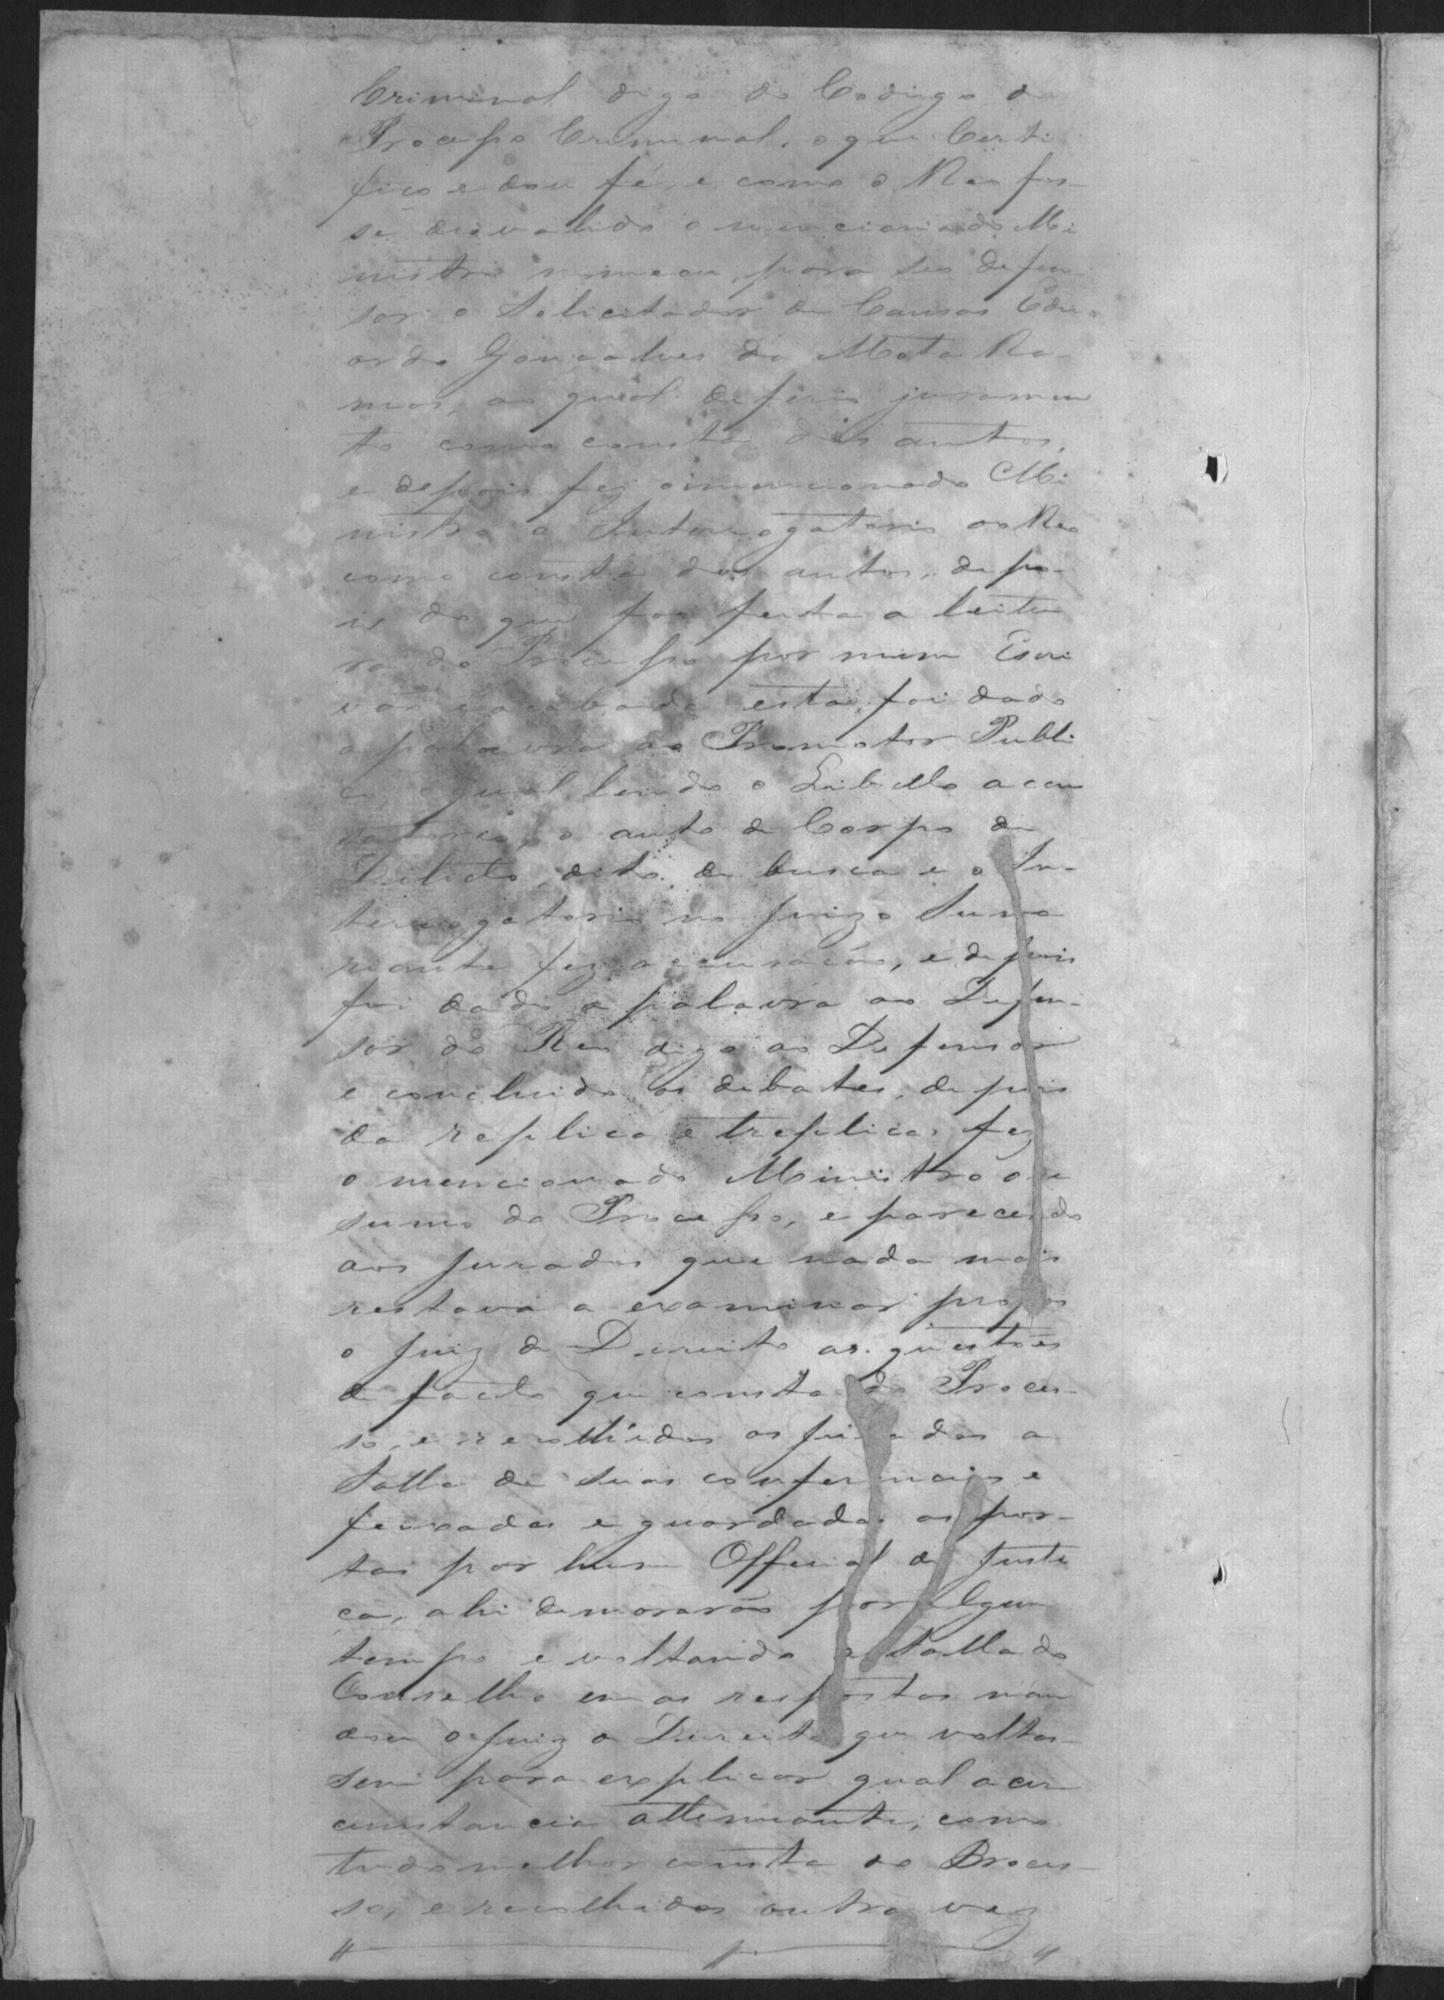 Criminal digo do Codigo do
Processo Criminal, o que Certi
fico e dou fé, e como o Reo fos-
se desvalido o mencionado Mi
nistro nomeou para seo defen-
sor o Solicitador de Causas Edu-
ardo Gonçalves da Mata Ra-
mos, ao qual deferio juramen
to como consta dos autos,
e depois fez o mencionado Mi
nistro o Interrogatorio ao Reo
como consta dos autos, depo-
is do que foi feita a leitu
ra do Processo por mim Escri
vão e acabada esta, foi dado
a palavra ao Promotor Publi
co, o qual lendo o Libello accu
satorio, o auto de Corpo de
Delicto, dito de busca e o In-
terrogatorio no Juizo suma
riante fez a accusacão, e depois
foi dado a palavra ao Defen-
sor do Reu digo ao Defensor
e concluido os debates, depois
da replica e treplica, fez
o mencionado Ministro o re
sumo do Processo, e parecendo
aos Jurados que nada mais
restava a examinar propos
o Juiz de Direito as questões
de facto que consta do Proces-
so, e recolhidos os jurados a
Salla de suas conferencias e
feixadas e guardadas as por-
tas por hum Official de Justi
ça, ahi demorarão por algum
tempo e voltando a Salla do
Conselho com as respostas man
dou o Juiz de Direito que voltas-
sem para explicar qual a cir
cunstancia attenuante, como
tudo melhor consta do Proces-
so, e recolhidos outra vez